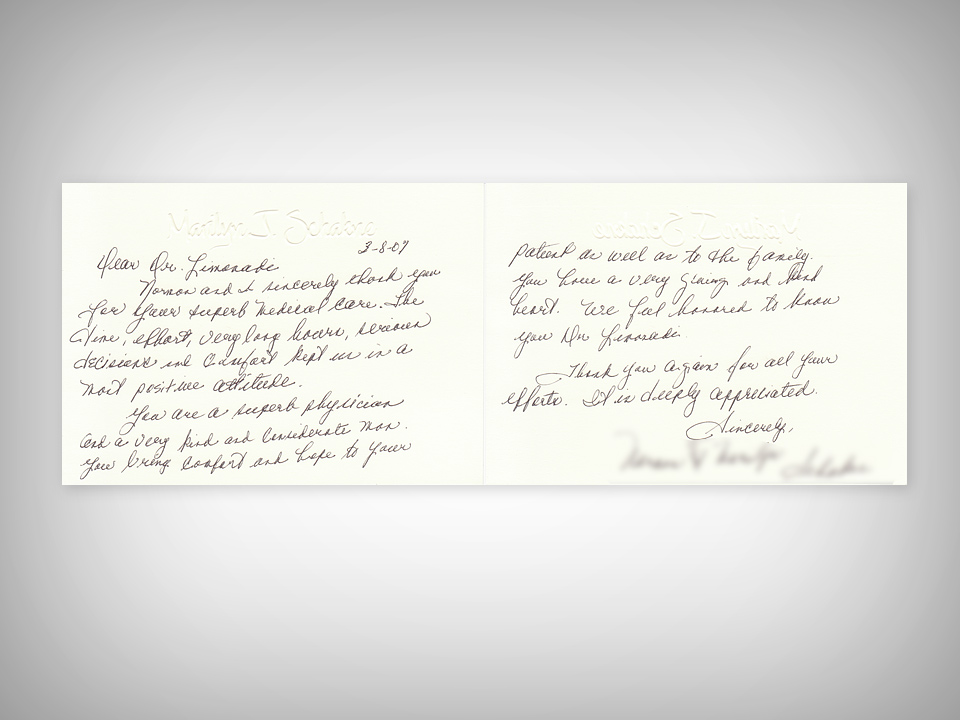 Marilyn J. Schabne
3-8-07
Dear Dr. Limonadi
Norman and I sincerely thank you
for your superb medical care. The
time, effort, very long hours, serious
decisions and comfort kept us in a
most positive attitude.
You are a superb physician
and a very kind and considerate man.
You bring comfort and hope to your
patient as well as to the family.
You have a very giving and kind
heart. We feel honored to know
you Dr. Limonadi.
Thank you again for all your
efforts. It is deeply appreciated.
Sincerely,